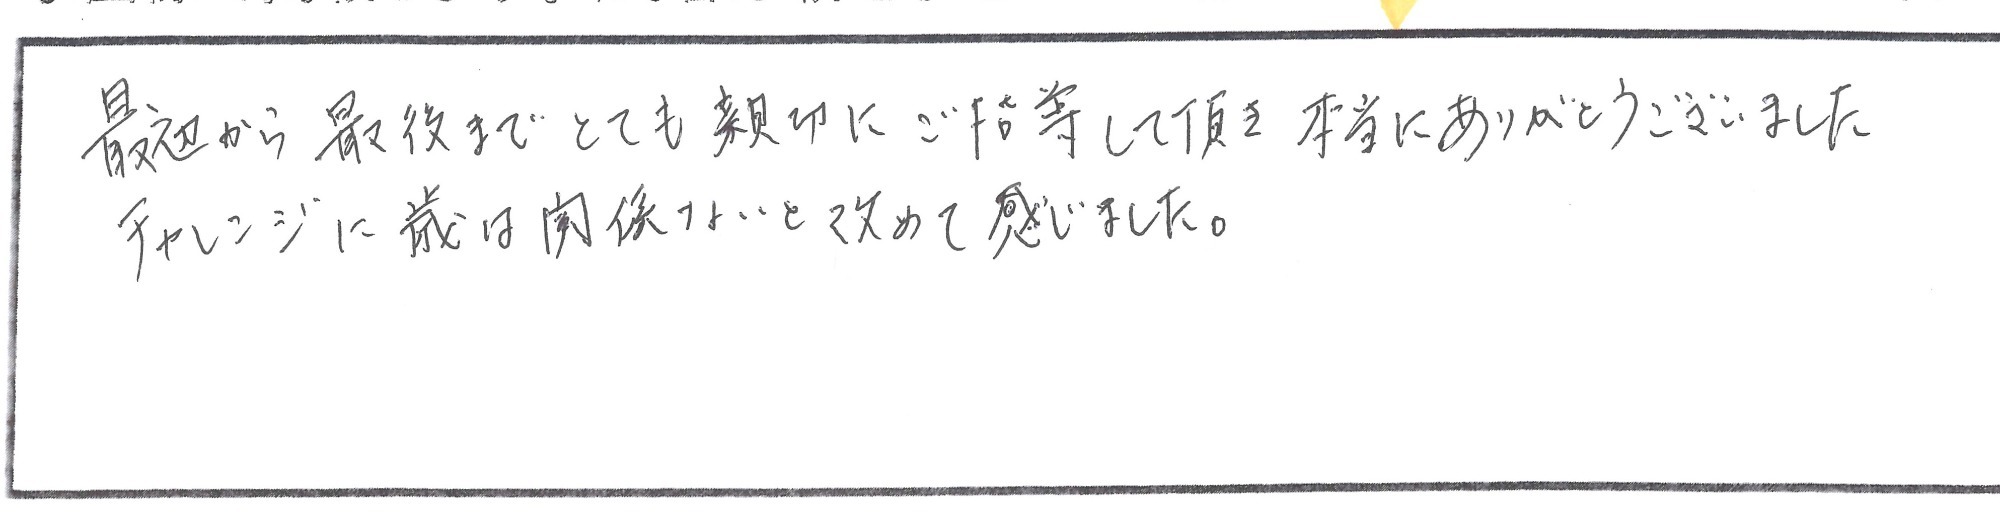 最初から最後までとても親切にご指導して頂き本当にありがとうございました
チャレンジに歳は関係ないと改めて感じました。